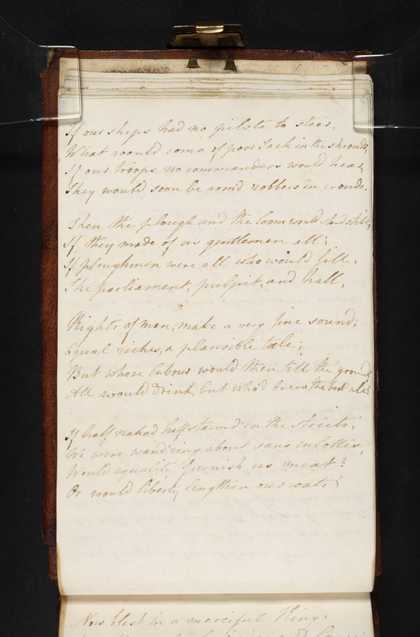 If our ships had no pilots to steer,
What would come of poor Jack in the shrouds
If our troops no commanders would hear,
They would soon be arm'd robbers in crouds.
Then the plough and the loom would stand still,
If they made of us gentlemen all;
If ploughmen were all, who would fill
The parliament, pulpit, and hall,
Rights of man, make a very fine sound;
Equal riches, a plausible tale;
But whose labour would then till the ground,
All would drink, but who'd brew the best ale
If half naked half starv'd in the streets,
We were wandering about sans culottes,
Would equality furnish us meat?
Or would liberty lengthen our coats?
Now blest in a merciful King.